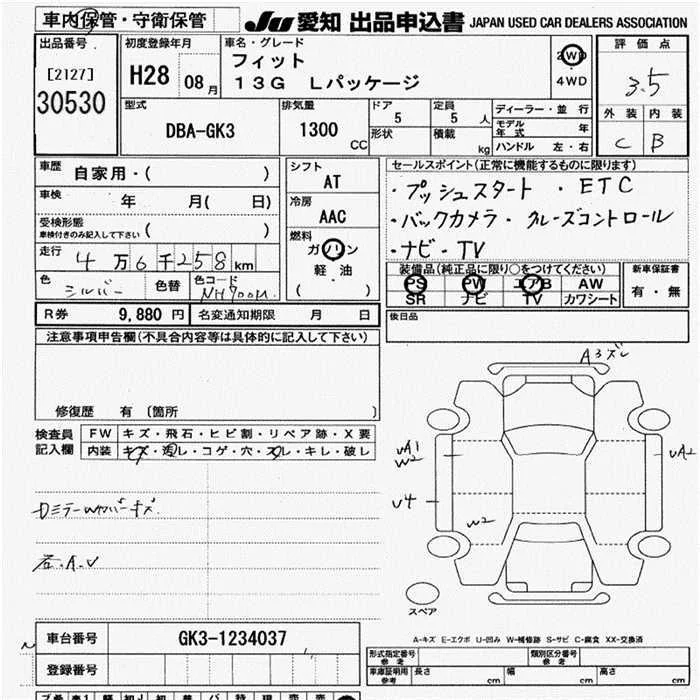 車内保管・守衛保管
JU 愛知 出品申込書 JAPAN USED CAR DEALERS ASSOCIATION
出品番号
[2127]
30530
初度登録年月
H28 08月
車名・グレード
フィット
13G Lパッケージ
2WD
4WD
評価点
3.5
外装 内装
C B
型式
DBA-GK3
排気量
1300 CC
ドア
5
形状
定員
5 人
積載
kg
ディーラー・並行
モデル年式 年
ハンドル 左・右
車歴 自家用・( )
車検 年 月( 日)
受検形態
車検付きのみ記入して下さい ( )
走行 4万6千258 km
色 シルバー 色替 色コード NH700M
シフト
AT
冷房
AAC
燃料
ガソリン
軽・油
( )
セールスポイント(正常に機能するものに限ります)
・プッシュスタート ・ETC
・バックカメラ・クルーズコントロール
・ナビ・TV
装備品(純正品に限り○をつけてください)
PS PW エアB AW
SR ナビ TV カワシート
新車保証書
有・無
R券 9,880 円 名変通知期限 月 日
後日品
注意事項申告欄(不具合内容等は具体的に記入して下さい)
修復歴 有 〔箇所 〕
検査員記入欄
FW キズ・飛石・ヒビ割・リペア跡・X要
内装 キズ・汚レ・コゲ・穴・スレ・キレ・破レ
A3ズレ
uA1
W2
uA2
U4
W2
DミラーWカバーキズ
老.A.V
スペア
A-キズ E-エクボ U-凹み W-補修跡 S-サビ C-腐食 XX-交換済
車台番号 GK3-1234037
登録番号
形式指定番号 参考
類別区分番号 参考
車庫証明用 参考 長さ cm 幅 cm 高さ cm